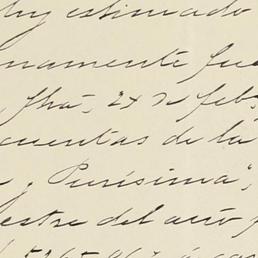 muy estimado
namente fue
, fha, 24 de feb,
cuentas de la
y Purísima",
estre del año p